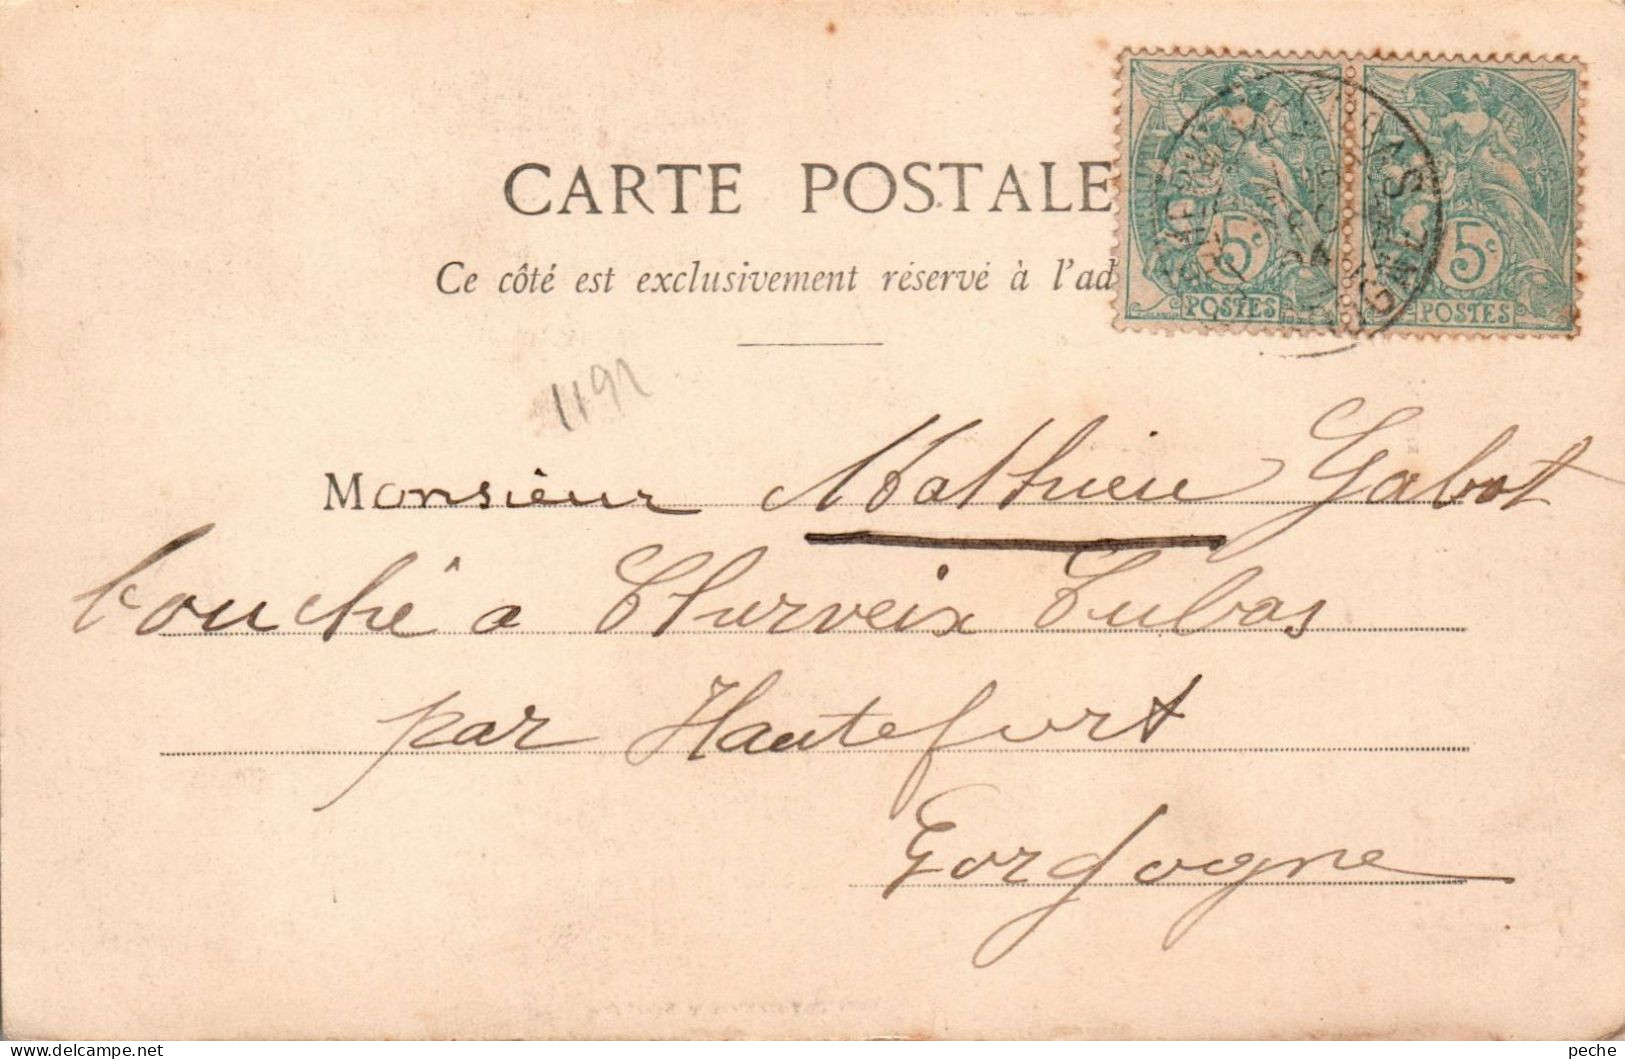 CARTE POSTALE
Ce côté est exclusivement réservé à l'ad
5c
POSTES
5c
POSTES
1192
Monsieur Mathieu Gabot
bouché a Cherveix Cubas
par Hautefort
Dordogne
peche